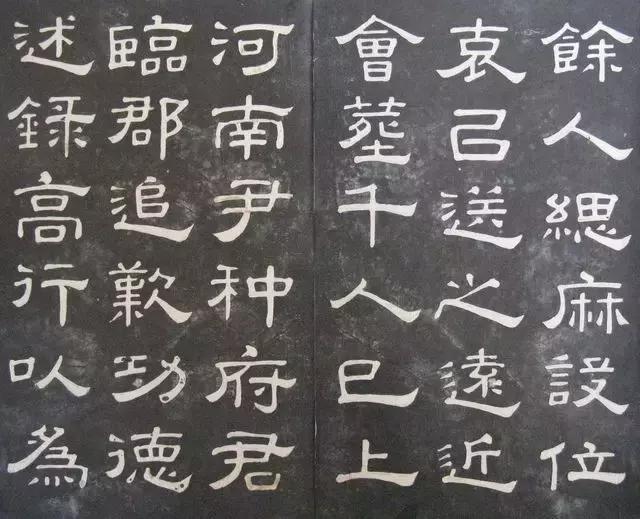 餘人緦麻設位
哀已送之遠近
會塟千人已上
河南尹种府君
臨郡追歎功德
述録高行以為